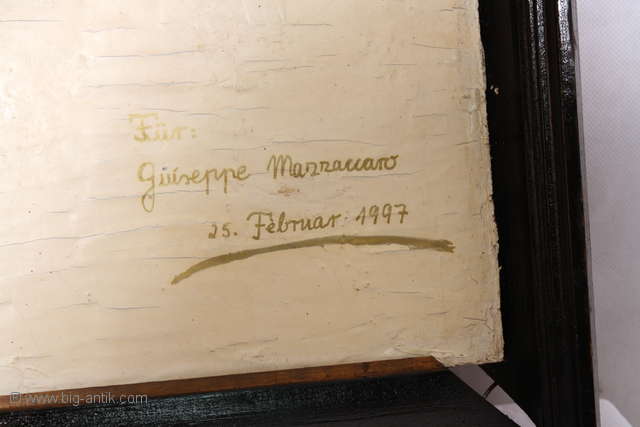 Für:
Giuseppe Mazzaccaro
25. Februar 1997
© www.big-antik.com